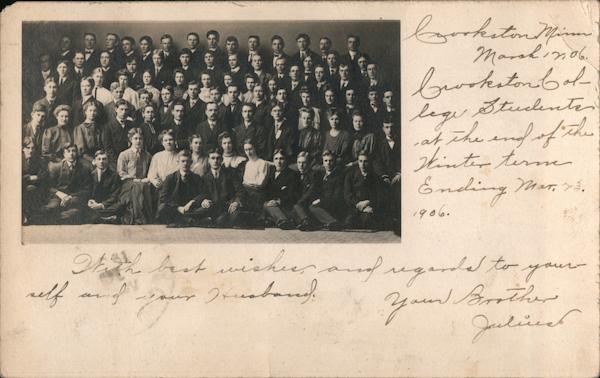 Crookston Minn
March 12, 06.
Crookston Col-
lege Students
at the end of the
Winter term
Ending Mar. 23.
1906.
With best wishes and regards to your-
self and your Husband.
Your Brother
Julius